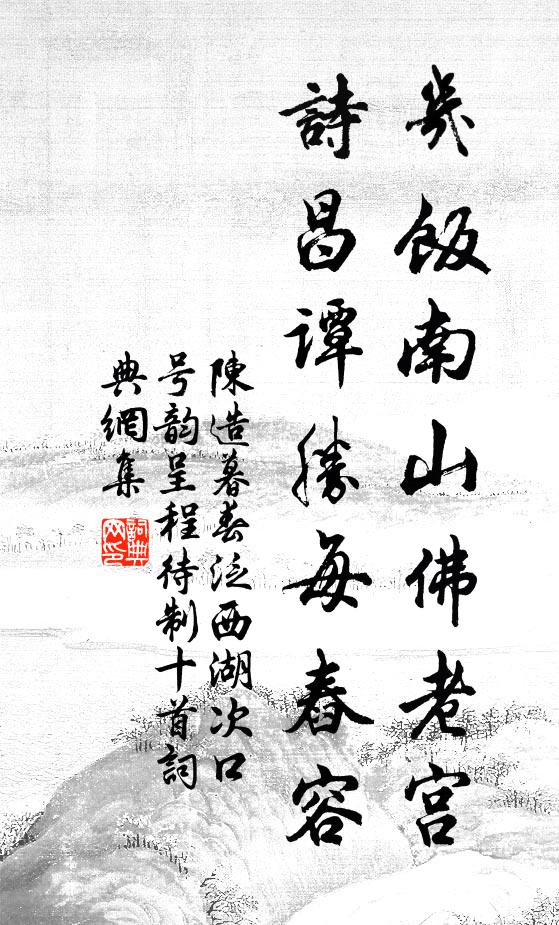 幾飯南山佛老宫
詩昌譚勝每舂容
陳造暮春泛西湖次口
号韵呈程待制十首詞
典網集
詞典
网印